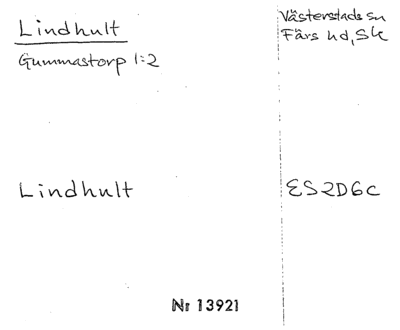 Lindhult
Gummastorp 1:2
Västerstads sn
Färs hd, Sk
Lindhult
ES2D6c
Nr 13921